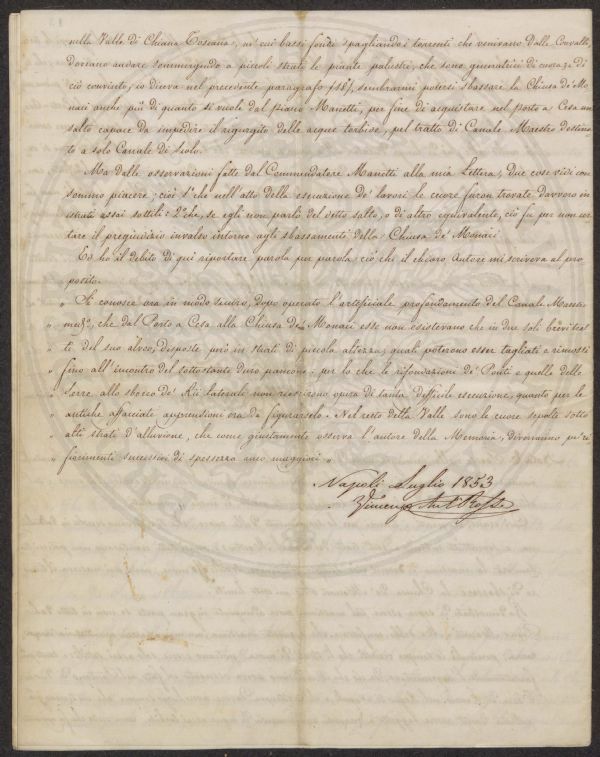 nella Valle di Chiana Toscana, ne' cui bassi fondi spagliando i torrenti che venivano dalle Convalli,
dovevano andare sommergendo a piccoli strati le piante palustri, che sono generatrici di cuora. E di
ciò convinto, io diceva nel precedente paragrafo, sembrarmi potersi sbassare la Chiusa de' Mo-
naci anche più di quanto si vuole dal piano Manetti, per fine di acquistare nel porto a Cesa un
salto capace da impedire il rigurgito delle acque torbide, pel tratto di Canale Maestro destina-
to a solo Canale di scolo.
Ma dalle osservazioni fatte dal Commendatore Manetti alla mia Lettera, due cose vidi con
sommo piacere; cioè 1.° che nell'atto della esecuzione de' lavori le cuore furon trovate davvero in
istrati assai sottili: 2.° che, se egli non parlò del detto salto, o di altro equivalente, ciò fu per non ur-
tare il pregiudizio invalso intorno agli sbassamenti della Chiusa de' Monaci.
Ed ho il debito di qui riportare parola per parola ciò che il chiaro Autore mi scriveva al pro-
posito.
" Si conosce ora in modo sicuro, dopo operato l'artificiale profondamento del Canale Maestro
" med.°, che dal Porto a Cesa alla Chiusa de' Monaci esse non esistevano che in due soli brevi trat-
" ti del suo alveo, disposte però in strati di piccola altezza; quali poterono esser tagliati e rimossi
" fino all'incontro del sottostante duro pancone: per lo che le rifondazioni de' Ponti e quelle delle
" Serre allo sbocco de' Rii laterali non riescirono opera di tanta difficile esecuzione, quanto per le
" antiche affacciate apprensioni era da figurarselo. Nel resto della Valle sono le cuore sepolte sotto
" alti strati d'alluvione, che come giustamente osserva l'autore della Memoria, diverranno pe' ri-
" fiorimenti successivi di spessezza anco maggiori "
Napoli Luglio 1853
Vincenzo Ant. Rossi